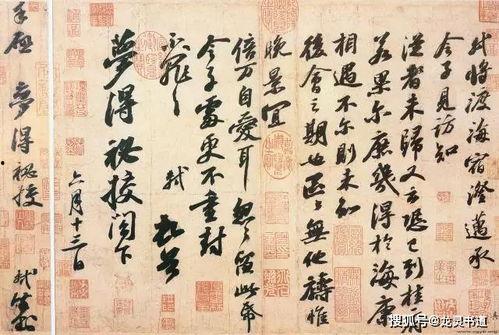 軾將渡海宿澄邁承
令子見訪知
從者未歸又云恐已到桂府
若果尔庶幾得於海康
相遇不尔則未知
後會之期也區區無他禱惟
晚景宜
倍万自愛耳怱怱留此帋
令子處更不重封
不罪不罪 軾 頓首
夢得祕校閣下
六月十三日
手啟 夢得祕校 軾 封
搜狐号@龙灵书道